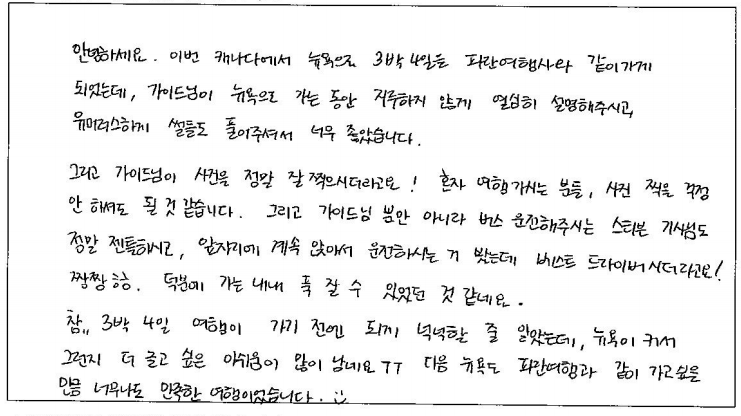 안녕하세요. 이번 캐나다에서 뉴욕으로 3박 4일을 파란여행사와 같이가게
되었는데, 가이드님이 뉴욕으로 가는 동안 지루하지 않게 열심히 설명해주시고,
유머러스하게 썰들도 풀어주셔서 너무 좋았습니다.
그리고 가이드님이 사진을 정말 잘 찍으시더라고요! 혼자 여행가시는 분들, 사진 찍을 걱정
안 해셔도 될 것 같습니다. 그리고 가이드님 뿐만 아니라 버스 운전해주시는 스티븐 기사님도
정말 젠틀하시고, 앞자리에 계속 앉아서 운전하시는 거 봤는데 베스트 드라이버시더라고요!
짱짱 ㅎㅎ. 덕분에 가는내내 푹 잘 수 있었던 것 같네요.
참, 3박 4일 여행이 가기 전엔 되게 넉넉할 줄 알았는데, 뉴욕이 커서
그런지 더 놀고 싶은 아쉬움이 많이 남네요 ㅜㅜ 다음 뉴욕도 파란여행과 같이 가고싶은
만큼 너무나도 만족한 여행이었습니다. :)